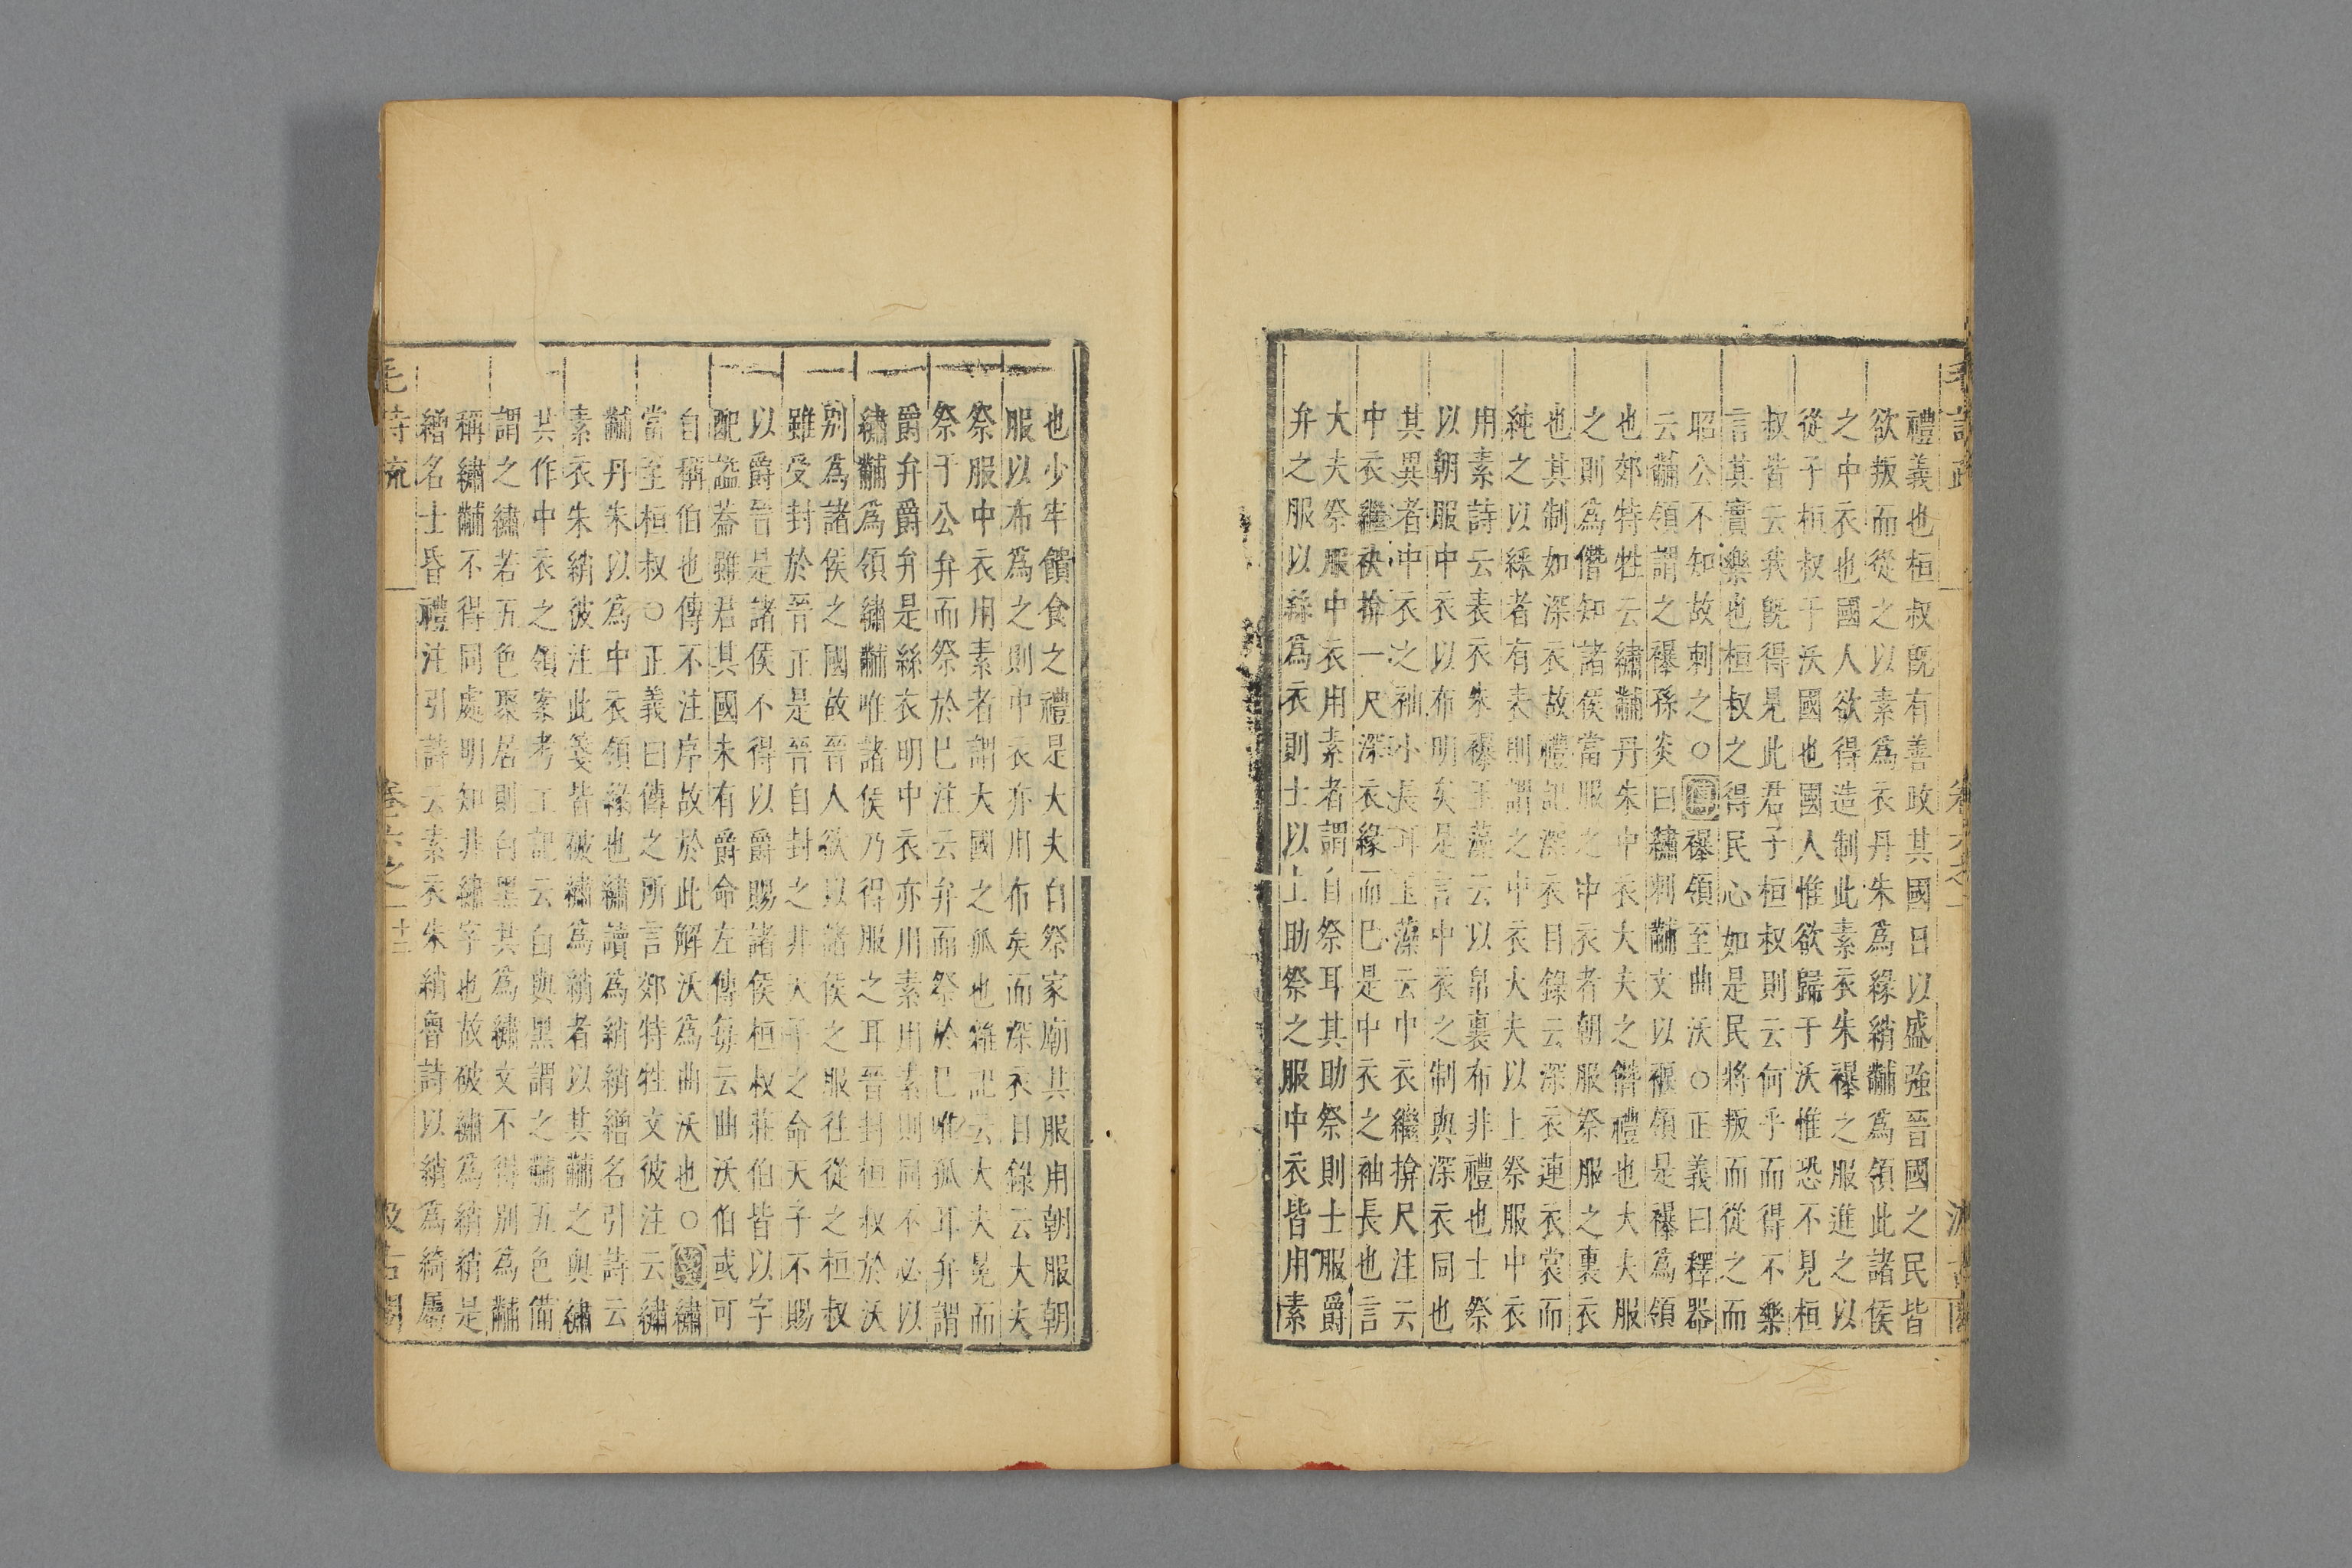 毛詩疏 卷六之一 汲古閣
禮義也桓叔旣有善政其國日以盛強晉國之民皆
欲叛而從之以素爲衣丹朱爲緣綃黼爲領此諸侯
之中衣也國人欲得造制此素衣朱襮之服進之以
從子桓叔于沃國也國人惟欲歸于沃惟恐不見桓
叔皆云我旣得見此君子桓叔則云何乎而得不樂
言其實樂也桓叔之得民心如是民將叛而從之而
昭公不知故刺之○傳襮領至曲沃○正義曰釋器
云黼領謂之襮孫炎曰繡刺黼文以褗領是襮爲領
也郊特牲云繡黼丹朱中衣大夫之僭禮也大夫服
之則爲僭知諸侯當服之中衣者朝服祭服之裏衣
也其制如深衣故禮記深衣目錄云深衣連衣裳而
純之以綵者有表則謂之中衣大夫以上祭服中衣
用素詩云素衣朱襮玉藻云以帛裏布非禮也士祭
以朝服中衣以布明矣是言中衣之制與深衣同也
其異者中衣之袖小長耳玉藻云中衣繼揜尺注云
中衣繼袂揜一尺深衣緣而已是中衣之袖長也言
大夫祭服中衣用素者謂自祭耳其助祭則士服爵
弁之服以絲爲衣則士以上助祭之服中衣皆用素
也少牢饋食之禮是大夫自祭家廟其服用朝服朝
服以布爲之則中衣亦用布矣而深衣目錄云大夫
祭服中衣用素者謂大國之孤也雜記云大夫冕而
祭于公弁而祭於已注云弁而祭於已唯孤耳弁謂
爵弁爵弁是絲衣明中衣亦用素用素則同不必以
繡黼爲領繡黼唯諸侯乃得服之耳晉封桓叔於沃
別爲諸侯之國故晉人欲以諸侯之服往從之桓叔
雖受封於晉正是晉自封之非天子之命天子不賜
以爵晉是諸侯不得以爵賜諸侯桓叔莊伯皆以字
配謚蓋雖君其國未有爵命左傳每云曲沃伯或可
自稱伯也傳不注序故於此解沃爲曲沃也○箋繡
當至桓叔○正義曰傳之所言郊特牲文彼注云繡
黼丹朱以爲中衣領緣也繡讀爲綃綃繒名引詩云
素衣朱綃彼注此箋皆破繡爲綃者以其黼之與繡
其作中衣之領案考工記云白與黑謂之黼五色備
謂之繡若五色聚居則白黑其爲繡文不得別爲黼
稱繡黼不得同處明知非繡字也故破繡爲綃綃是
繒名士昏禮注引詩云素衣朱綃魯詩以綃爲綺屬
毛詩疏 卷六之一 十三 汲古閣